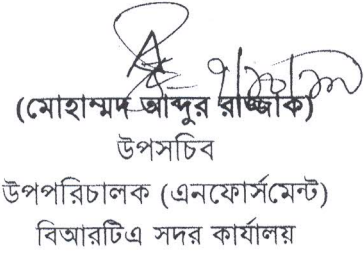 (মোহাম্মদ আব্দুর রাজ্জাক)
উপসচিব
উপপরিচালক (এনফোর্সমেন্ট)
বিআরটিএ সদর কার্যালয়